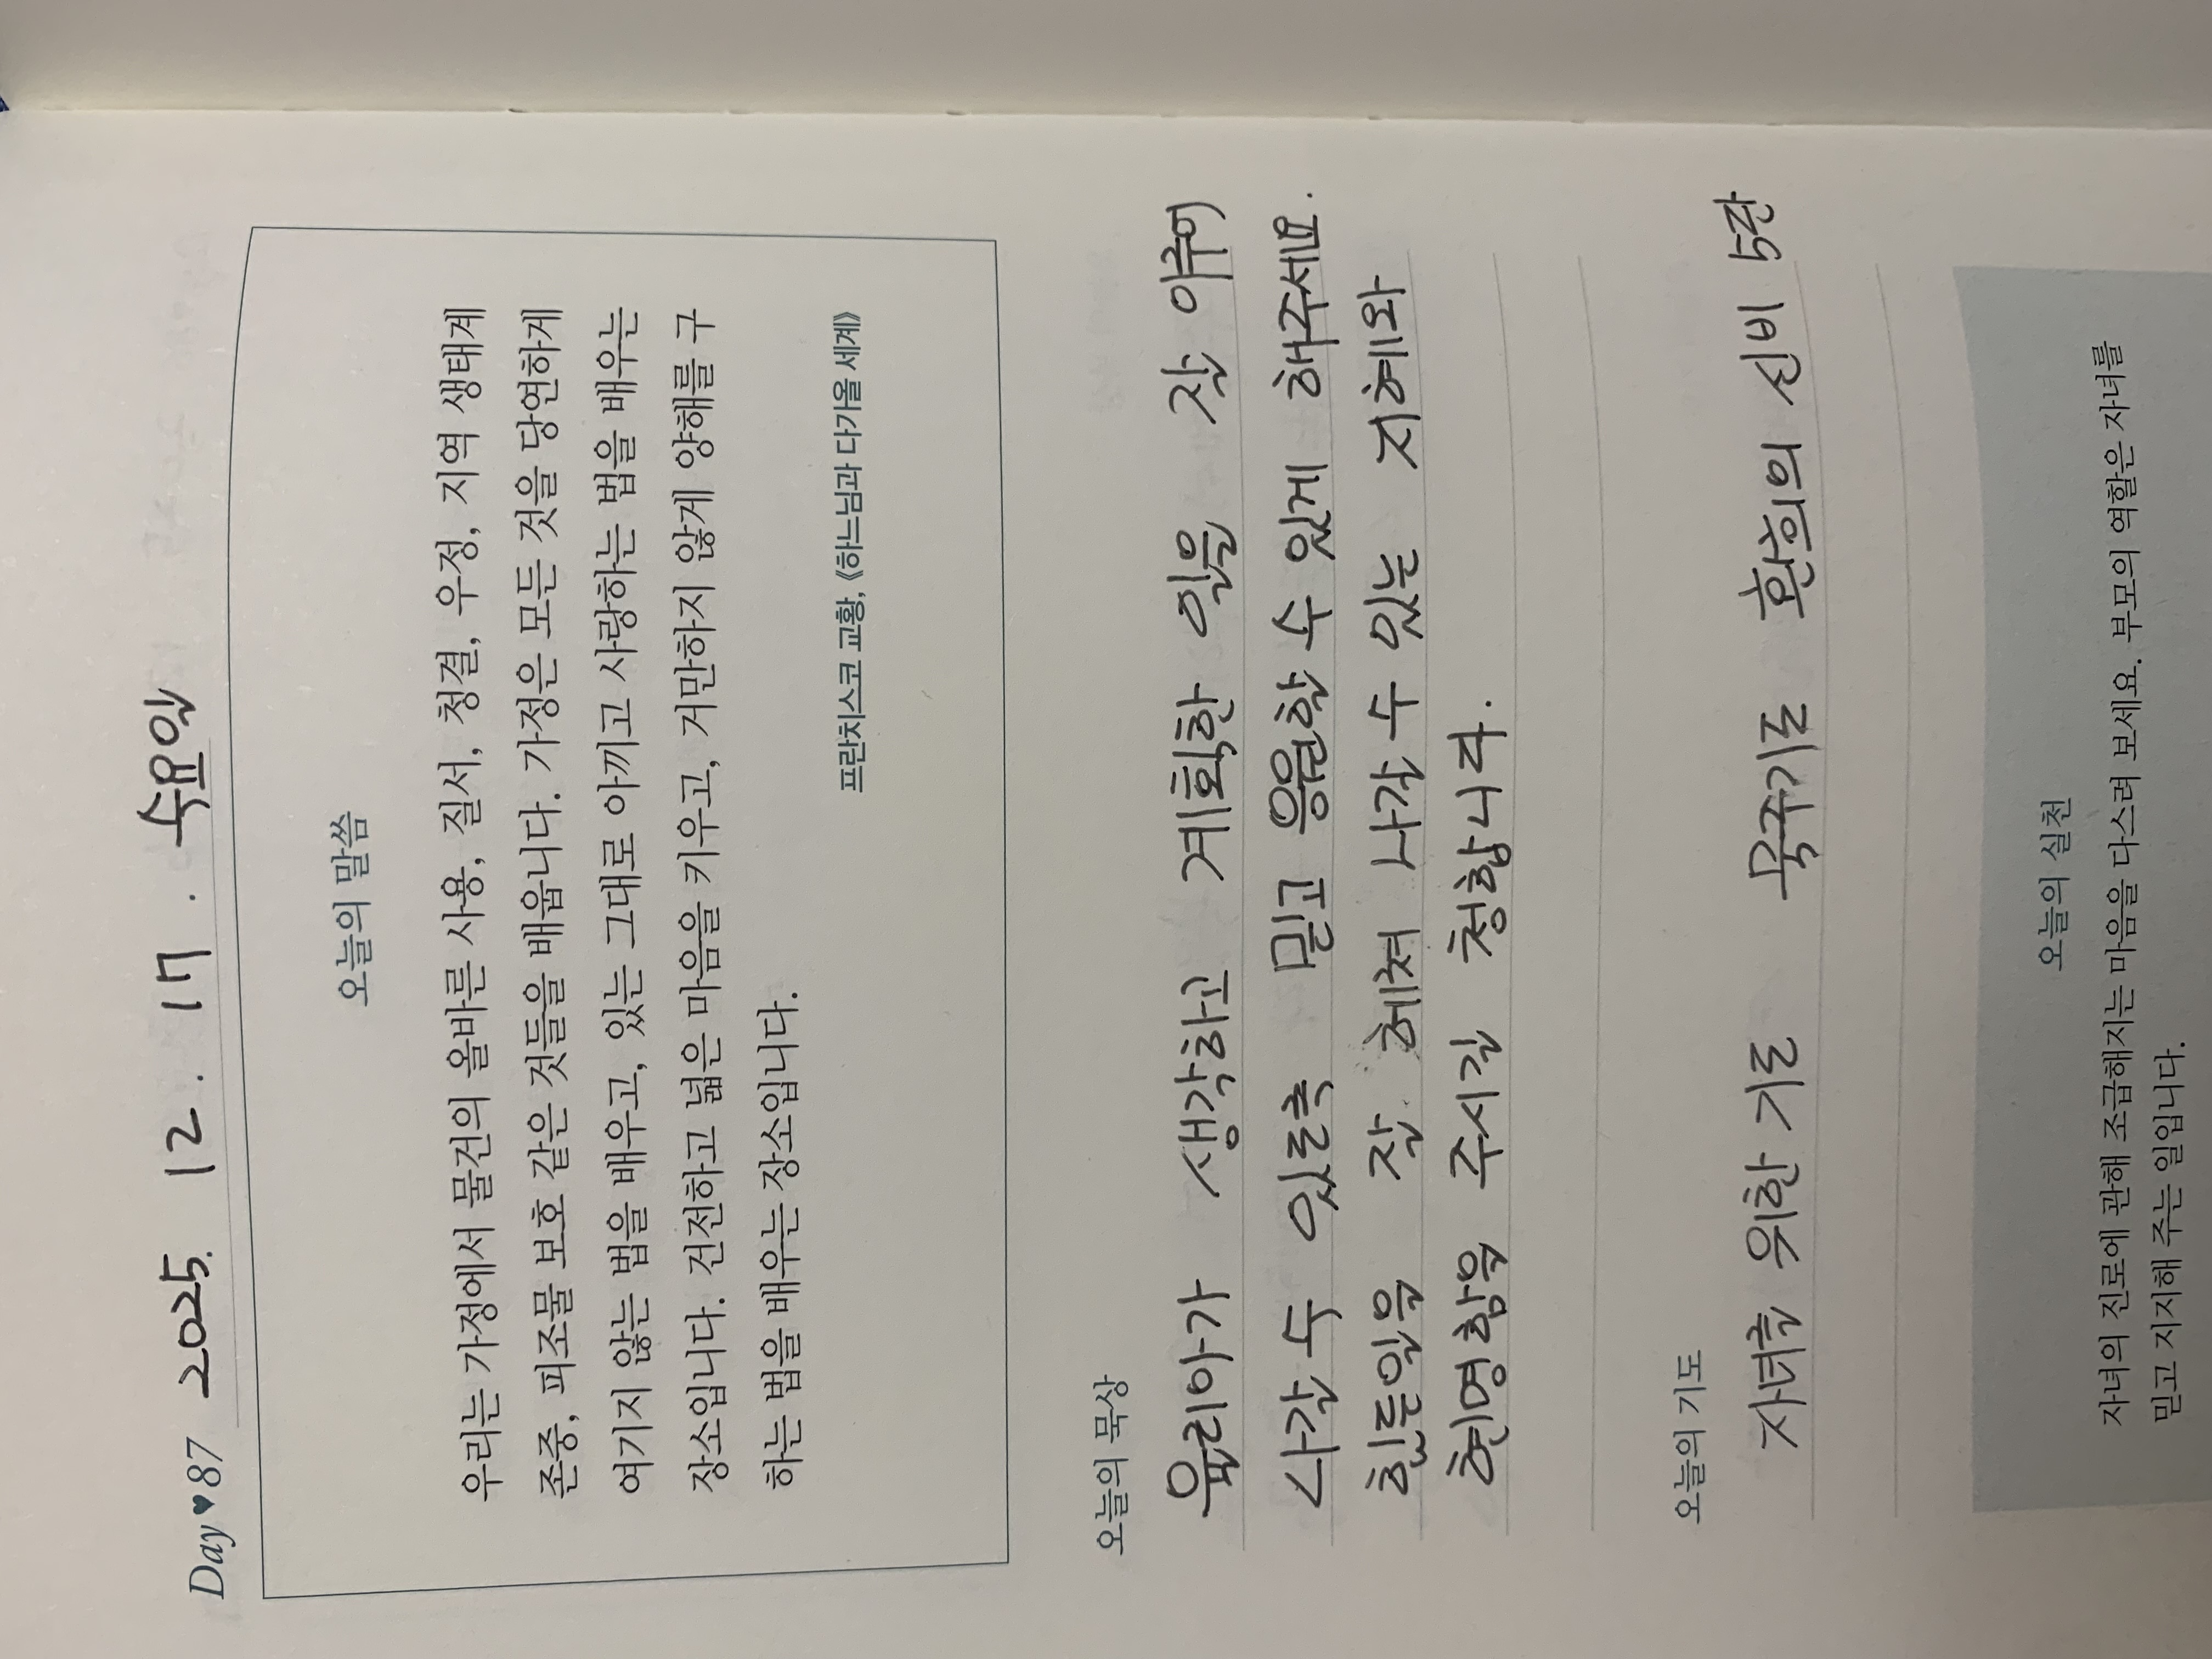 Day♥87 2025. 12. 17. 수요일
오늘의 말씀
우리는 가정에서 물건의 올바른 사용, 질서, 청결, 우정, 지역 생태계
존중, 피조물 보호 같은 것들을 배웁니다. 가정은 모든 것을 당연하게
여기지 않는 법을 배우고, 있는 그대로 아끼고 사랑하는 법을 배우는
장소입니다. 건전하고 넓은 마음을 키우고, 거만하지 않게 양해를 구
하는 법을 배우는 장소입니다.
프란치스코 교황, 《하느님과 다가올 세계》
오늘의 묵상
율리아가 생각하고 계획한 일을 잘 이루어
나갈 수 있도록 믿고 응원할 수 있게 해주세요.
힘든일을 잘 헤쳐 나갈 수 있는 지혜와
현명함을 주시길 청합니다.
오늘의 기도
자녀를 위한 기도 묵주기도 환희의 신비 5단
오늘의 실천
자녀의 진로에 관해 조급해지는 마음을 다스려 보세요. 부모의 역할은 자녀를
믿고 지지해 주는 일입니다.